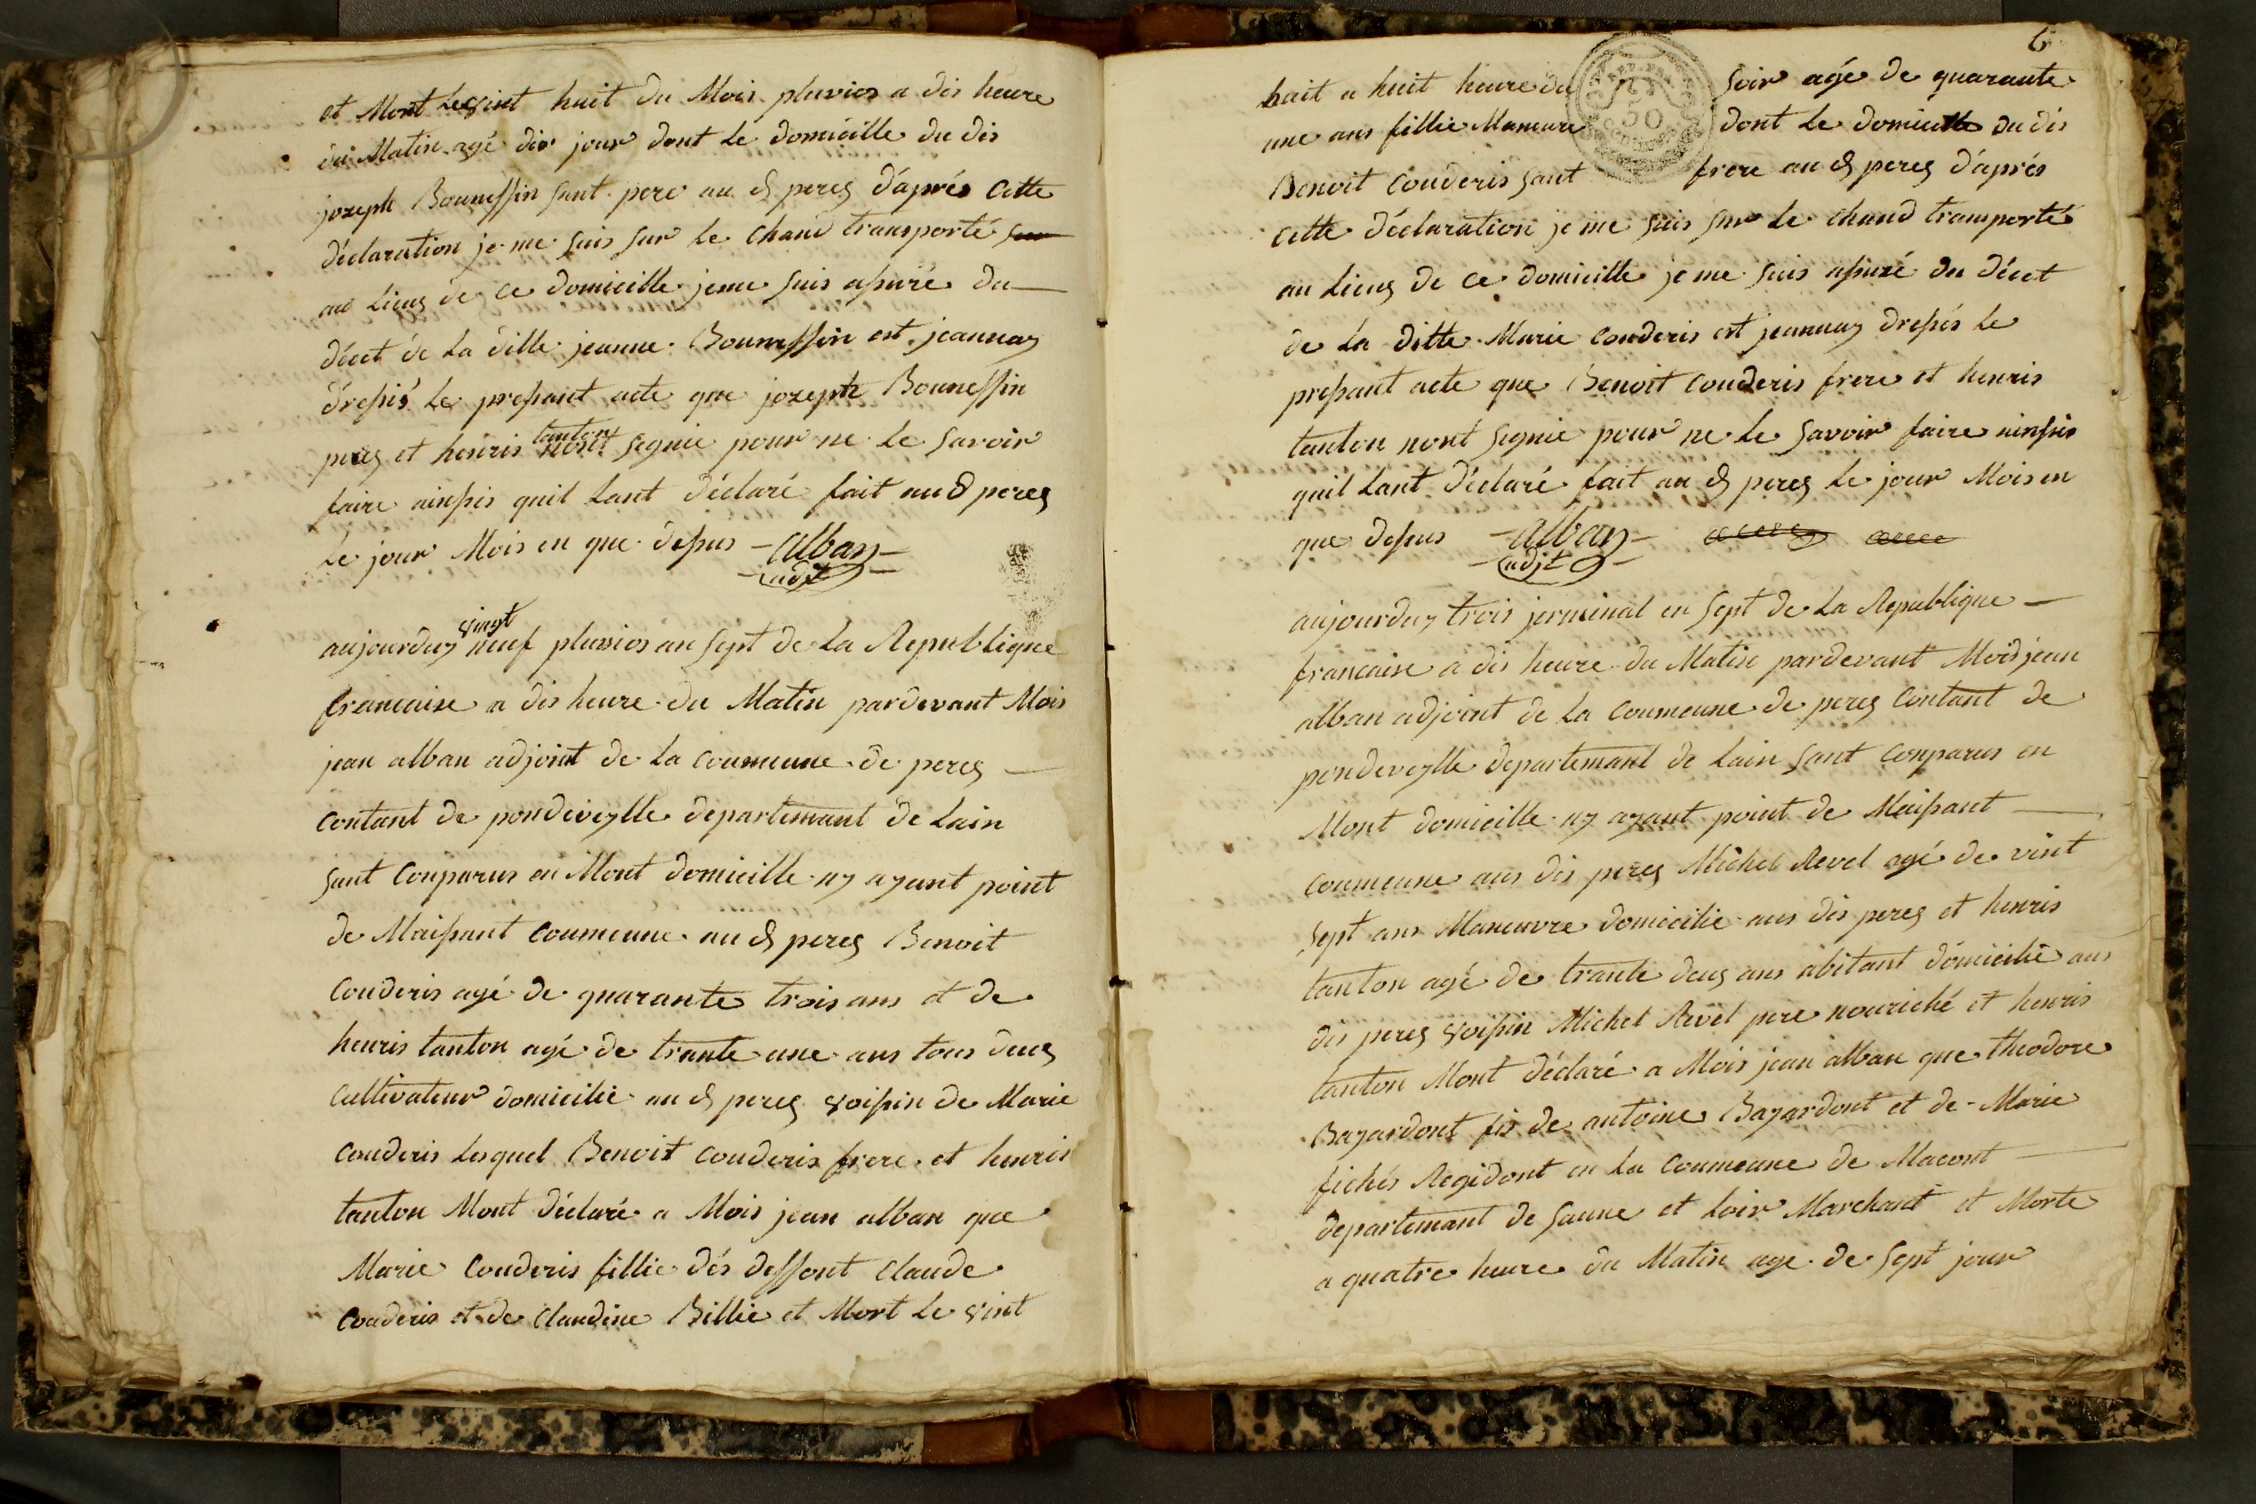 et Mort le vint huit du Mois pluvios a dis heure
du Matin agé dis jour dont le domicille du dis
jozeph Bouneffin sant pere au d perez d'aprés cette
déclaration je me suis sur le chand transporté
au lieuz de ce domicille je me suis asuré du
décet de la ditte jeanne Bouneffin est jeannay
dressés le pressant acte que jozeph Bouneffin
perez et henris tanton nont segnie pour ne le savoir
faire ainssis quil lant déclaré fait au d perez
le jour Mois en que dessus alban
adjt
aujourduy vingt neuf pluvios an sept de la Republique
francaise a dis heure du Matin pardevant Mois
jean alban adjoint de la coumeune de perez
contant de pondeveylle departemant de lain
sant Conparus en Mont domicille ny ayant point
de Maissant coumeune au d perez Benoit
Couderis agé de quarante trois ans et de
henris tanton agé de trante une ans tous deuz
Cultivateur domicilie au d perez voissin de Marie
Couderis lesquel Benoit couderis frere et henris
tanton Mont déclaré a Mois jean alban que
Marie Couderis fillie dés deffont Claude
Couderis et de Claudine Billie et Mort le vint
6
huit a huit heure du soir agé de quarante
une ans fillie Maneuvre dont le domicille du dis
Benoit Couderis sant frere au d perez d'aprés
cette déclaration je me suis sur le chand transporté
au lieuz de ce domicille je me suis assuré du décet
de la ditte Marie Couderis est jeannay dressés le
pressant acte que Benoit Couderis frere et henris
tanton nont segnie pour ne le savoir faire ainssis
quil lant déclaré fait au d perez le jour Mois en
que dessus alban
adjt
aujourduy trois jerminal en sept de la Republique
francaise a dis heure du Matin pardevant Mois jean
alban adjoint de la coumeune de perez Contant de
pondeveylle departemant de lain sant Conparus en
Mont domicille ny ayant point de Maissant
coumeune aus dis perez Michel Revel agé de vint
sept ans Maneuvre domicilie aus dis perez et henris
tanton agé de trante deuz ans abitant domicilie aus
dis perez voissin Michel Revel pere nouriché et henris
tanton Mont déclaré a Mois jean alban que theodore
Bazardont fis de antoine Bazardont et de Marie
fichés Regidont en la coumeune de Macont
departemant de saune et loir Marchant et Morte
a quatre heure du Matin age de sept jour